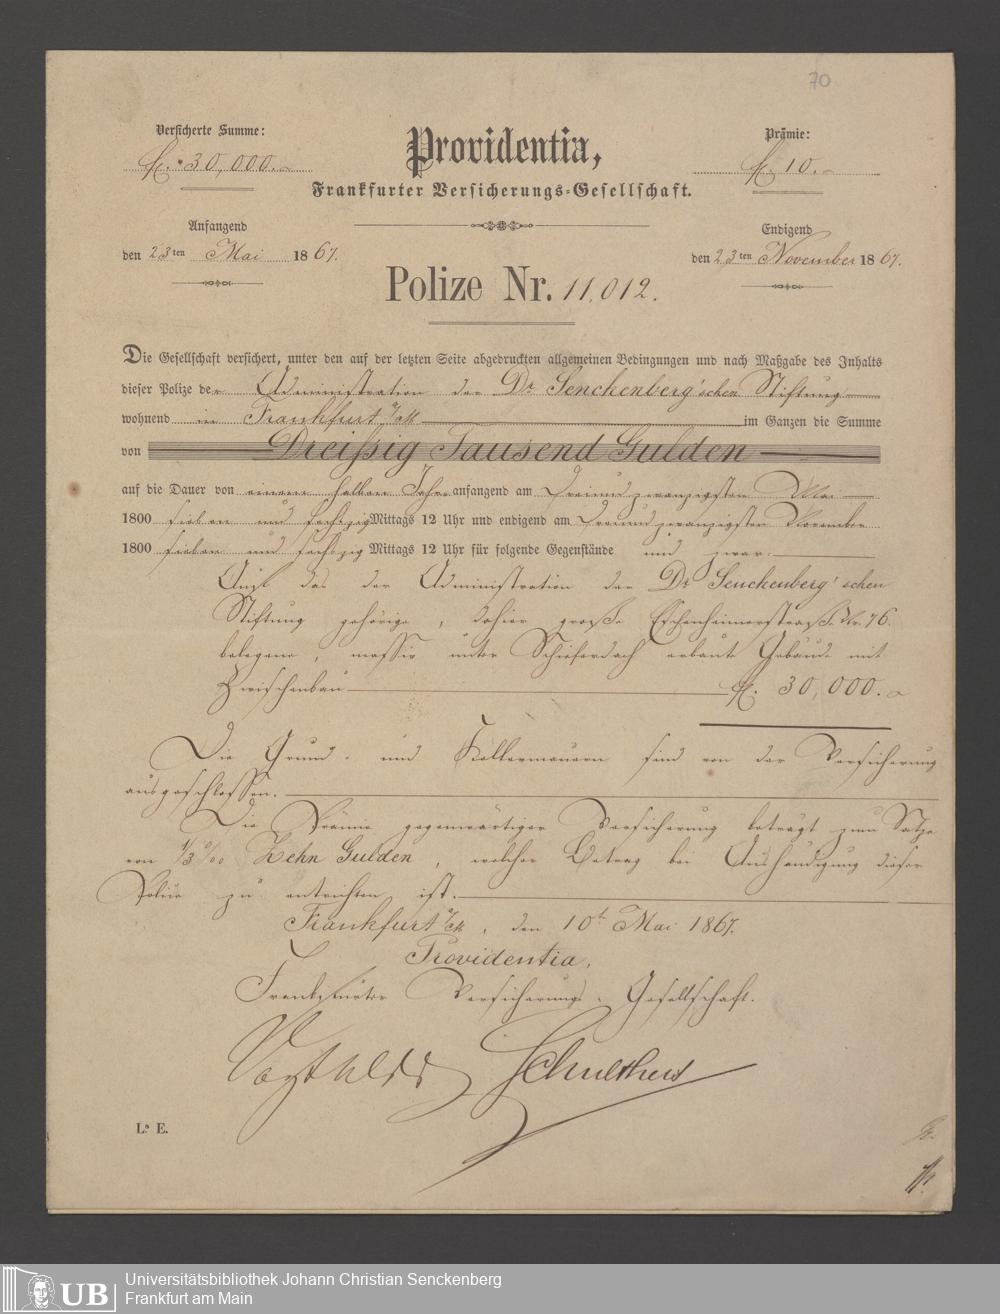 70
Versicherte Summe:
fl. 30,000.
Providentia,
Frankfurter Versicherungs-Gesellschaft.
Prämie:
fl. 10.
Anfangend
den 23ten Mai 1867.
Endigend
den 23ten November 1867.
Polize Nr. 11,012.
Die Gesellschaft versichert, unter den auf der letzten Seite abgedruckten allgemeinen Bedingungen und nach Maßgabe des Inhalts
dieser Polize der Administration der Dr. Senckenberg'schen Stiftung
wohnend in Frankfurt a/M im Ganzen die Summe
von Dreißig Tausend Gulden
auf die Dauer von einem halben Jahr anfangend am Dreiundzwanzigsten Mai
1800 sieben und sechszig Mittags 12 Uhr und endigend am Dreiundzwanzigsten November
1800 sieben und sechszig Mittags 12 Uhr für folgende Gegenstände und zwar:
Auf das der Administration der Dr. Senckenberg'schen
Stiftung gehörige, dahier große Eschenheimerstraße Nr. 76.
belegene, massiv unter Schieferdach erbaute Gebäude mit
Zwischenbau fl. 30,000.
Die Grund- und Kellermauern sind von der Versicherung
ausgeschlossen.
Die Prämie gegenwärtiger Versicherung beträgt zum Satze
von 1/3 ‰ Zehn Gulden, welcher Betrag bei Aushändigung dieser
Polize zu entrichten ist.
Frankfurt a/M, den 10t Mai 1867.
Providentia,
Frankfurter Versicherungs-Gesellschaft.
La E.
UB
Universitätsbibliothek Johann Christian Senckenberg
Frankfurt am Main